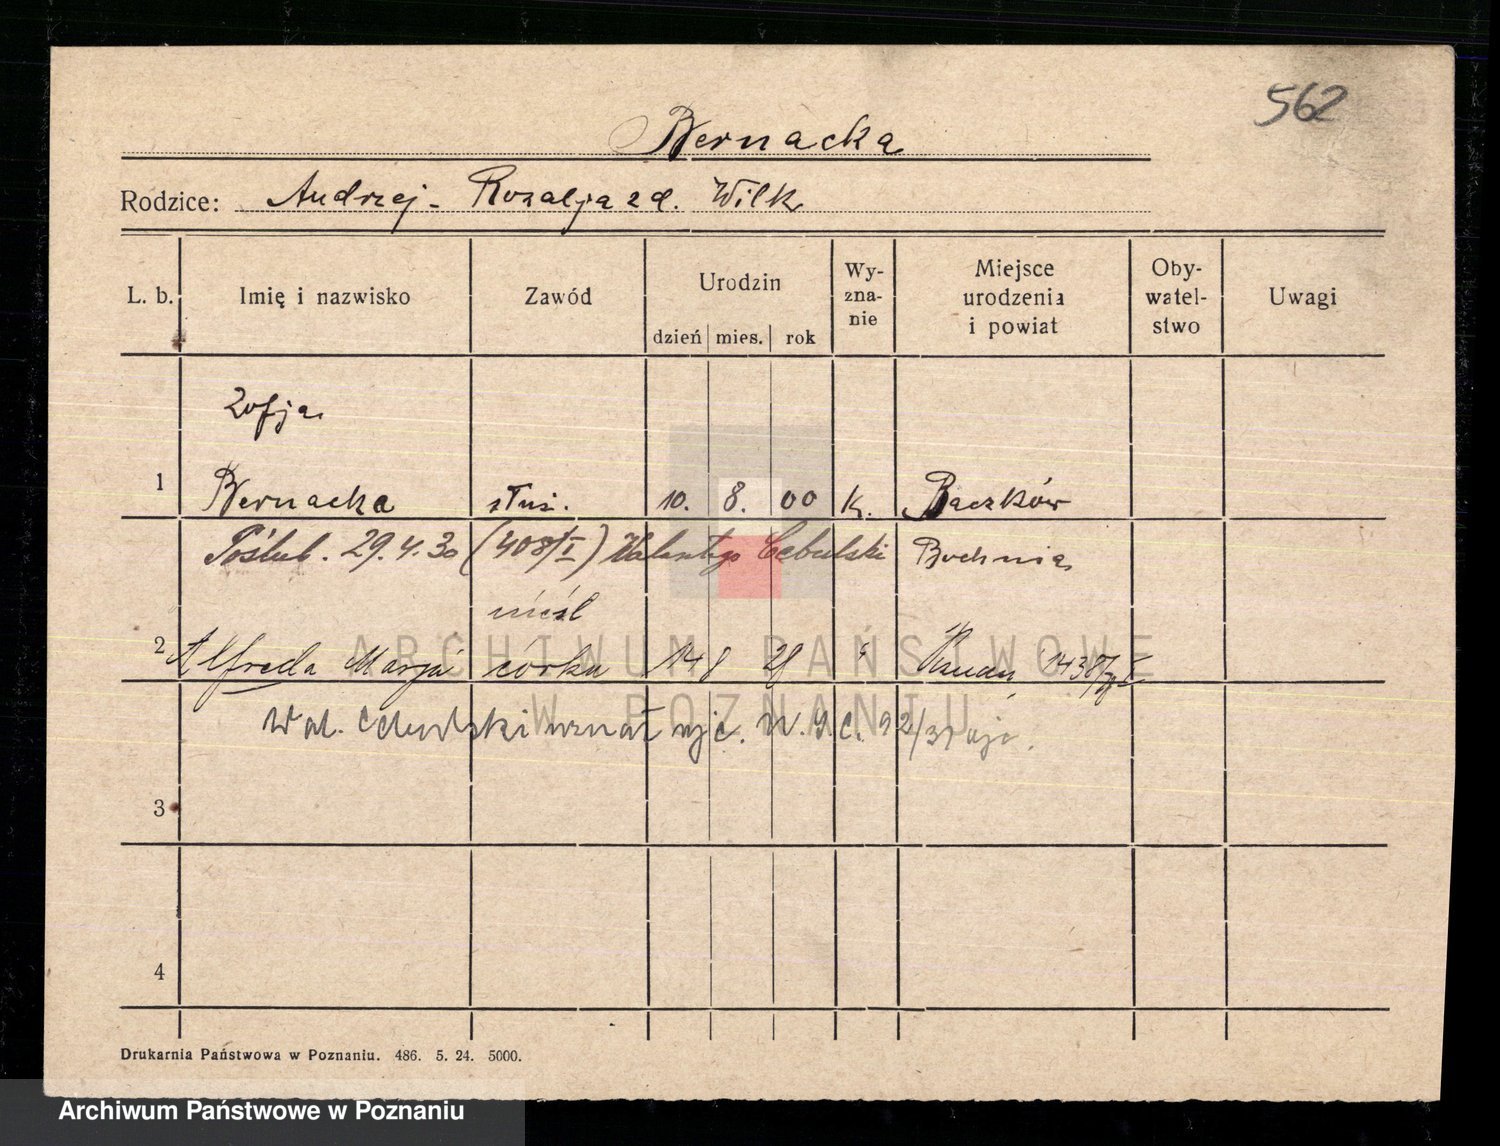 562
Bernacka
Rodzice: Andrzej - Rozalja zd. Wilk
L. b. Imię i nazwisko Zawód Urodzin dzień mies. rok Wy-zna-nie Miejsce urodzenia i powiat Oby-watel-stwo Uwagi
Zofja
1 Bernacka służ. 10. 8. 00 K. Baczków
Poślub. 29.4.30 (408/I) Walentego Cebulski Bochnia
nieśl
2 Alfreda Marja córka 14 8 29 " 1438/29 I
Wal. Cebulski uznał ojc.
3
4
Drukarnia Państwowa w Poznaniu. 486. 5. 24. 5000.
ARCHIWUM PAŃSTWOWE
W POZNANIU
Archiwum Państwowe w Poznaniu